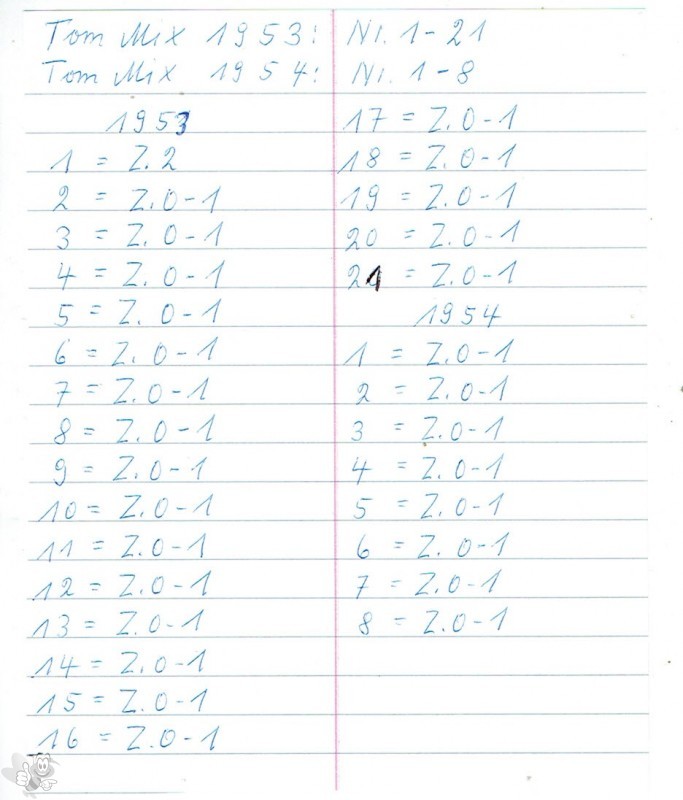 Tom Mix 1953: Nr. 1-21
Tom Mix 1954: Nr. 1-8
1953
1 = Z. 2
2 = Z. 0-1
3 = Z. 0-1
4 = Z. 0-1
5 = Z. 0-1
6 = Z. 0-1
7 = Z. 0-1
8 = Z. 0-1
9 = Z. 0-1
10 = Z. 0-1
11 = Z. 0-1
12 = Z. 0-1
13 = Z. 0-1
14 = Z. 0-1
15 = Z. 0-1
16 = Z. 0-1
17 = Z. 0-1
18 = Z. 0-1
19 = Z. 0-1
20 = Z. 0-1
21 = Z. 0-1
1954
1 = Z. 0-1
2 = Z. 0-1
3 = Z. 0-1
4 = Z. 0-1
5 = Z. 0-1
6 = Z. 0-1
7 = Z. 0-1
8 = Z. 0-1